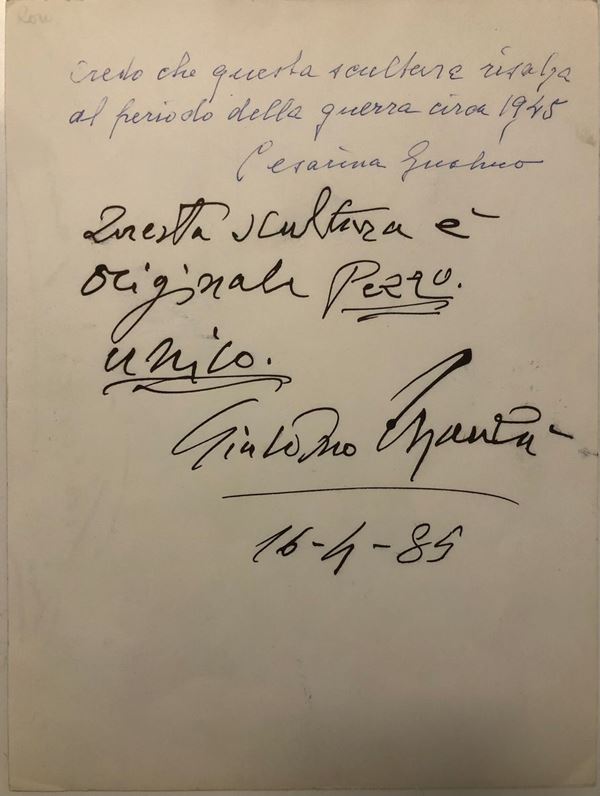 Credo che questa scultura risalga
al periodo della guerra circa 1945
Cesarina Gualino
Questa scultura è
originale Pezzo.
unico.
Giacomo Manzù
16-4-85